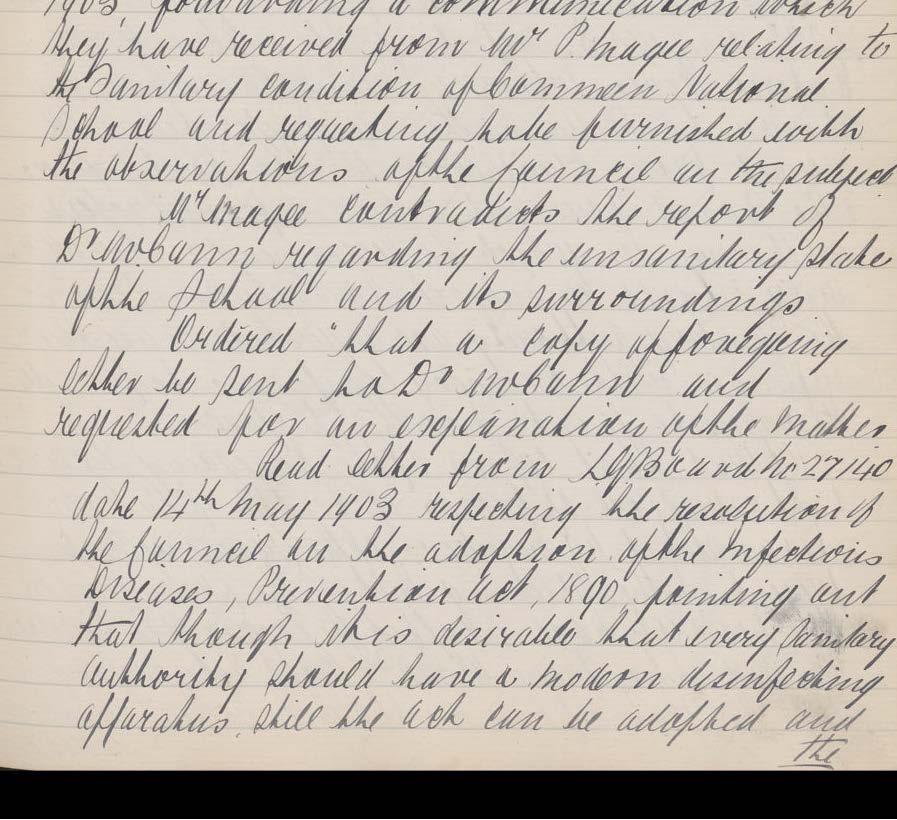 1903, forwarding a communication which
they have received from Mr P. Magee relating to
the Sanitary condition of Commeen National
School and requesting to be furnished with
the observations of the Council on the subject
Mr Magee contradicts the report of
Dr McCann regarding the unsanitary state
of the School and its surroundings
Ordered "that a copy of foregoing
letter be sent to Dr McCann and
requested for an explanation of the matter
Read letter from LGBoard No 27140
date 14th May 1903 respecting the resolution of
the Council on the adoption of the Infectious
Diseases, Prevention Act, 1890, pointing out
that though it is desirable that every Sanitary
Authority should have a modern disinfecting
apparatus, still the act can be adopted and
the